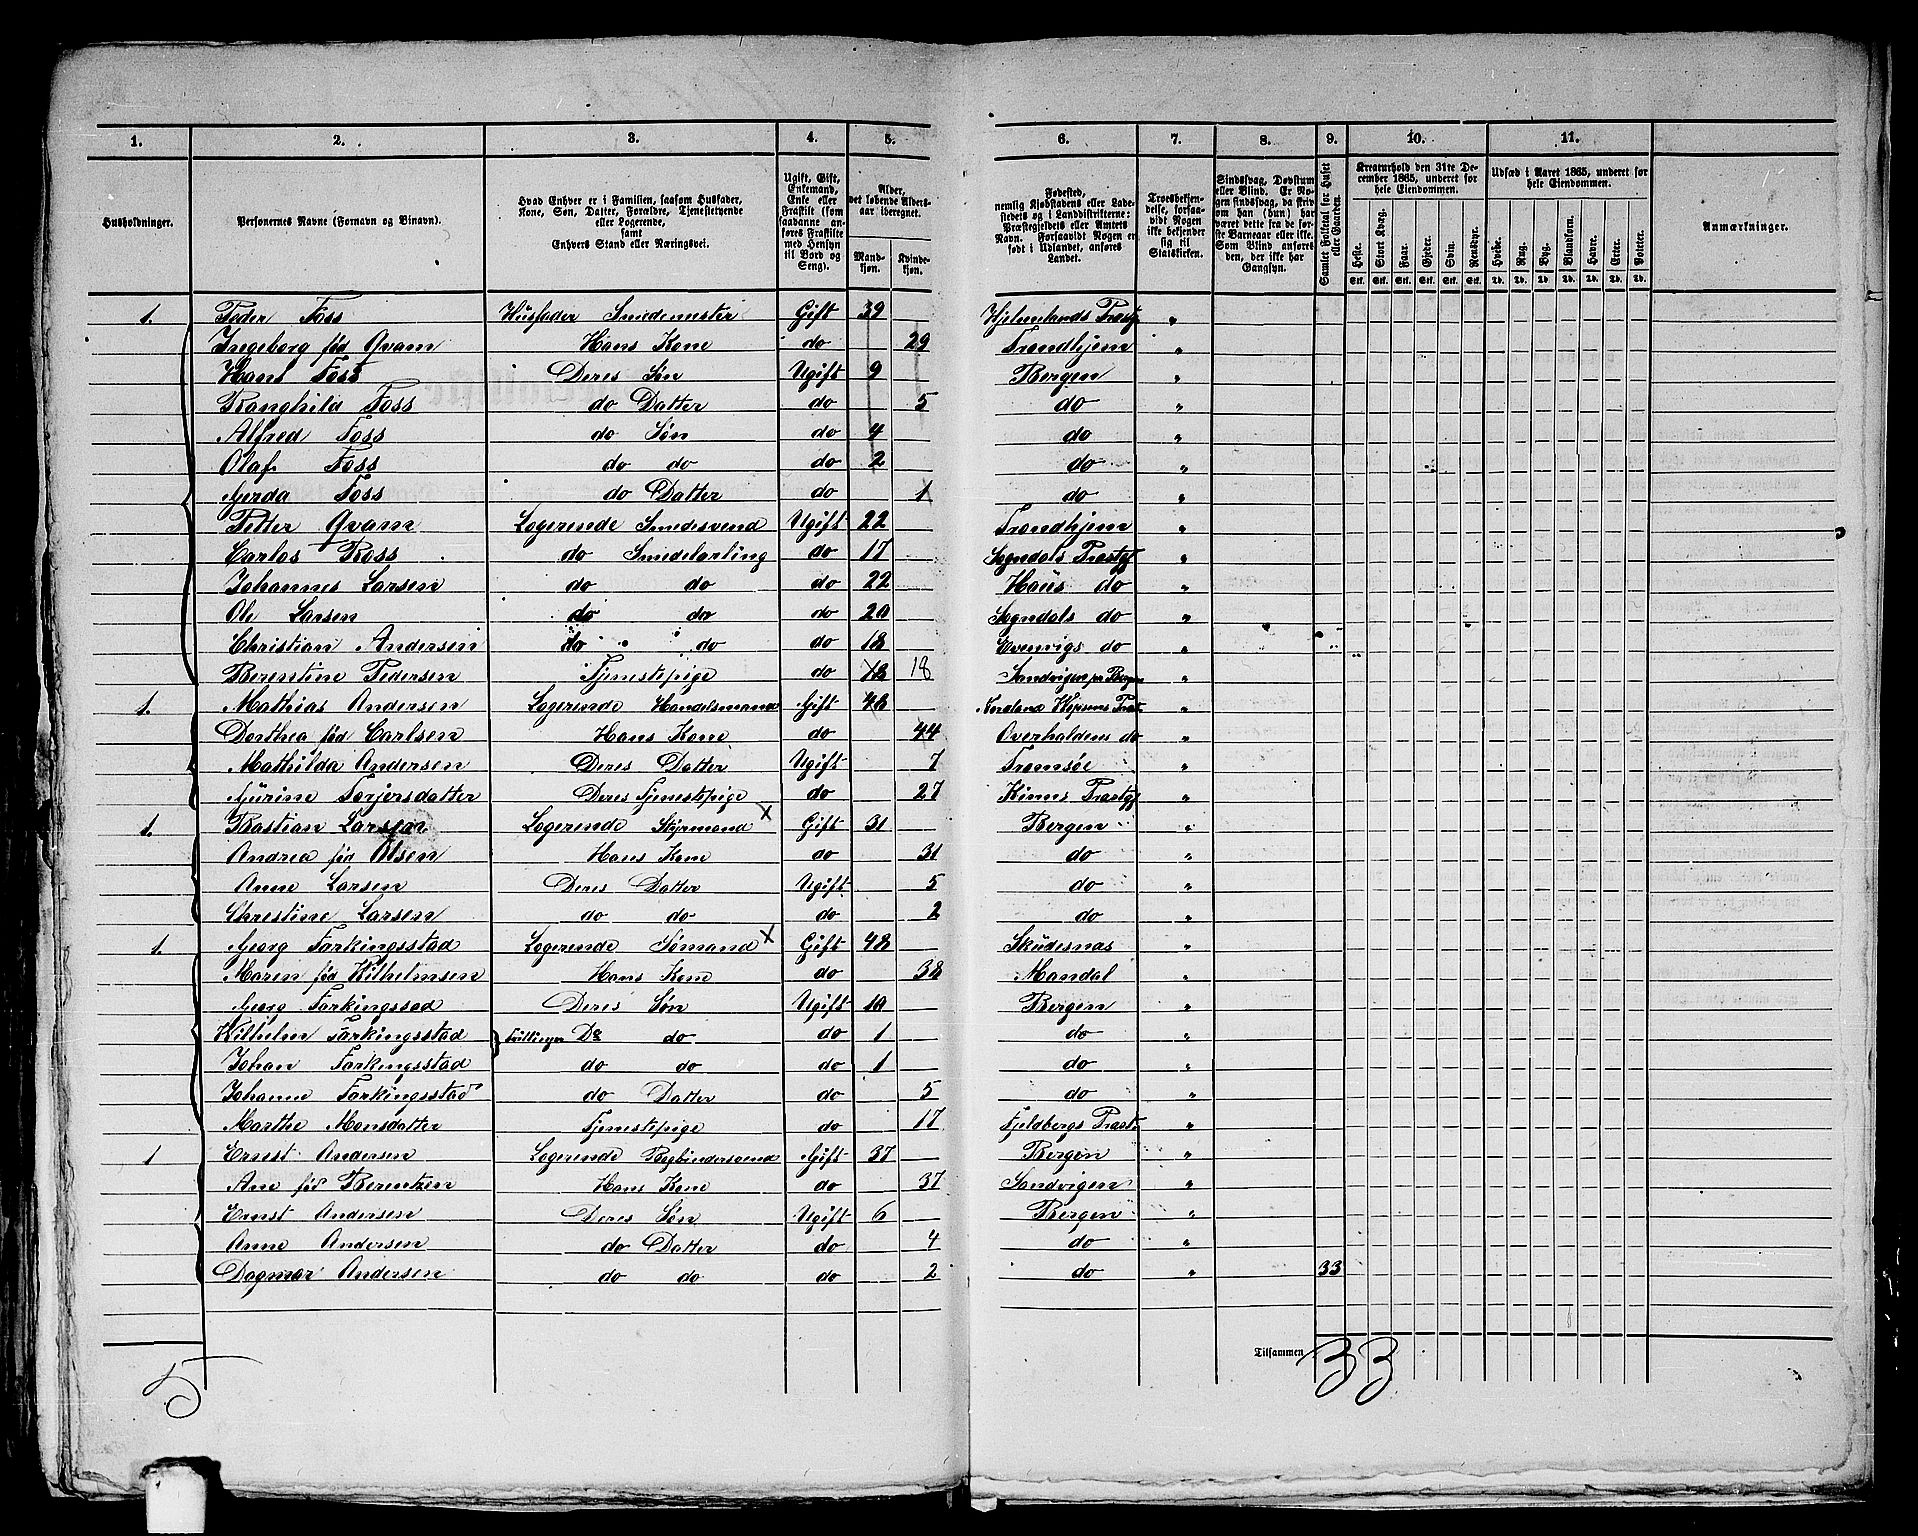 1. 2. 3. 4. 5. 6. 7. 8. 9. 10. 11.
Husholdninger.
Personernes Navne (Fornavn og Binavn).
Hvad Enhver er i Familien, saasom Husfader, Kone, Søn, Datter, Forældre, Tjenestetyende eller Logerende, samt Enhvers Stand eller Næringsvei.
Ugift, Gift, Enkemand, Enke eller Fraskilt (som saadanne anføres Fraskilte med Hensyn til Bord og Seng).
Alder, det løbende Aldersaar iberegnet.
Mandkjøn. Kvindekjøn.
Fødested, nemlig Kjøbstadens eller Ladestedets og i Landdistrikterne: Præstegjeldets eller Amtets Navn. Forsaavidt Nogen er født i Udlandet, anføres Landet.
Troesbekjendelse, forsaavidt Nogen ikke bekjender sig til Statskirken.
Sindssvag, Døvstum eller Blind. Er Nogen sindssvag, da skrives om han (hun) har været dette fra de første Barneaar eller ikke. Som Blind anføres den, der ikke har Gangsyn.
Samlet Folketal for Huset eller Gaarden.
Kreaturhold den 31te December 1865, underet for hele Eiendommen.
Heste. Stort Kvæg. Faar. Gjeder. Svin. Rensdyr.
Stk. Stk. Stk. Stk. Stk. Stk.
Udsæd i Aaret 1865, underet for hele Eiendommen.
Hvede. Rug. Byg. Blandkorn. Havre. Erter. Poteter.
Td. Td. Td. Td. Td. Td. Td.
Anmærkninger.
1. Peder Foss Husfader Smedemester Gift 39 Hjelmelands Præstg "
Ingeborg fød Qvam Hans Kone do 29 Trondhjem "
Hans Foss Deres Søn Ugift 9 Bergen "
Ranghild Foss do Datter do 5 do "
Alfred Foss do Søn do 4 do "
Olaf Foss do do do 2 do "
Gerda Foss do Datter do 1 do "
Petter Qvam Logerende Smedesvend Ugift 22 Trondhjem "
Carlos Ross do Smedelærling do 17 Sogndals Præstgj "
Johannes Larsen do do do 22 Haus do "
Ole Larsen do do do 20 Sogndals do "
Christian Andersen do do do 18 Evenvigs do "
Berentine Pedersen Tjenestepige do 18 18 Sandvigen pr Bergen "
1. Mathias Andersen Logerende Handelsmand Gift 48 Præst "
Dorthea fød Carlsen Hans Kone do 44 Overhaldens do "
Mathilda Andersen Deres Datter Ugift 7 Tromsøe "
Gurine Torjersdatter Deres Tjenestepige do 27 Kinns Præstgj "
1. Bastian Larsen Logerende Styrmand X Gift 31 Bergen "
Andrea fød Olsen Hans Kone do 31 do "
Anne Larsen Deres Datter Ugift 5 do "
Christine Larsen do do do 2 do "
1. Georg Farkingsstad Logerende Sømand X Gift 48 Skudesnæs "
Maren fød Vilhelmsen Hans Kone do 38 Mandal "
Georg Farkingssad Deres Søn Ugift 10 Bergen "
Vilhelm Farkingsstad Tvillinger Do do do 1 do "
Johan Farkingsstad do do do 1 do "
Johanne Farkingsstad do Datter do 5 do "
Marthe Monsdatter Tjenestepige do 17 Fjeldbergs Præst "
1 Ernst Andersen Logerende Bogbindersvend Gift 37 Bergen "
Ane fød Berentzen Hans Kone do 37 Sandvigen "
Ernst Andersen Deres Søn Ugift 6 Bergen "
Anne Andersen do Datter do 4 do "
Dagmar Andersen do do do 2 do " 33
Tilsammen 33
5